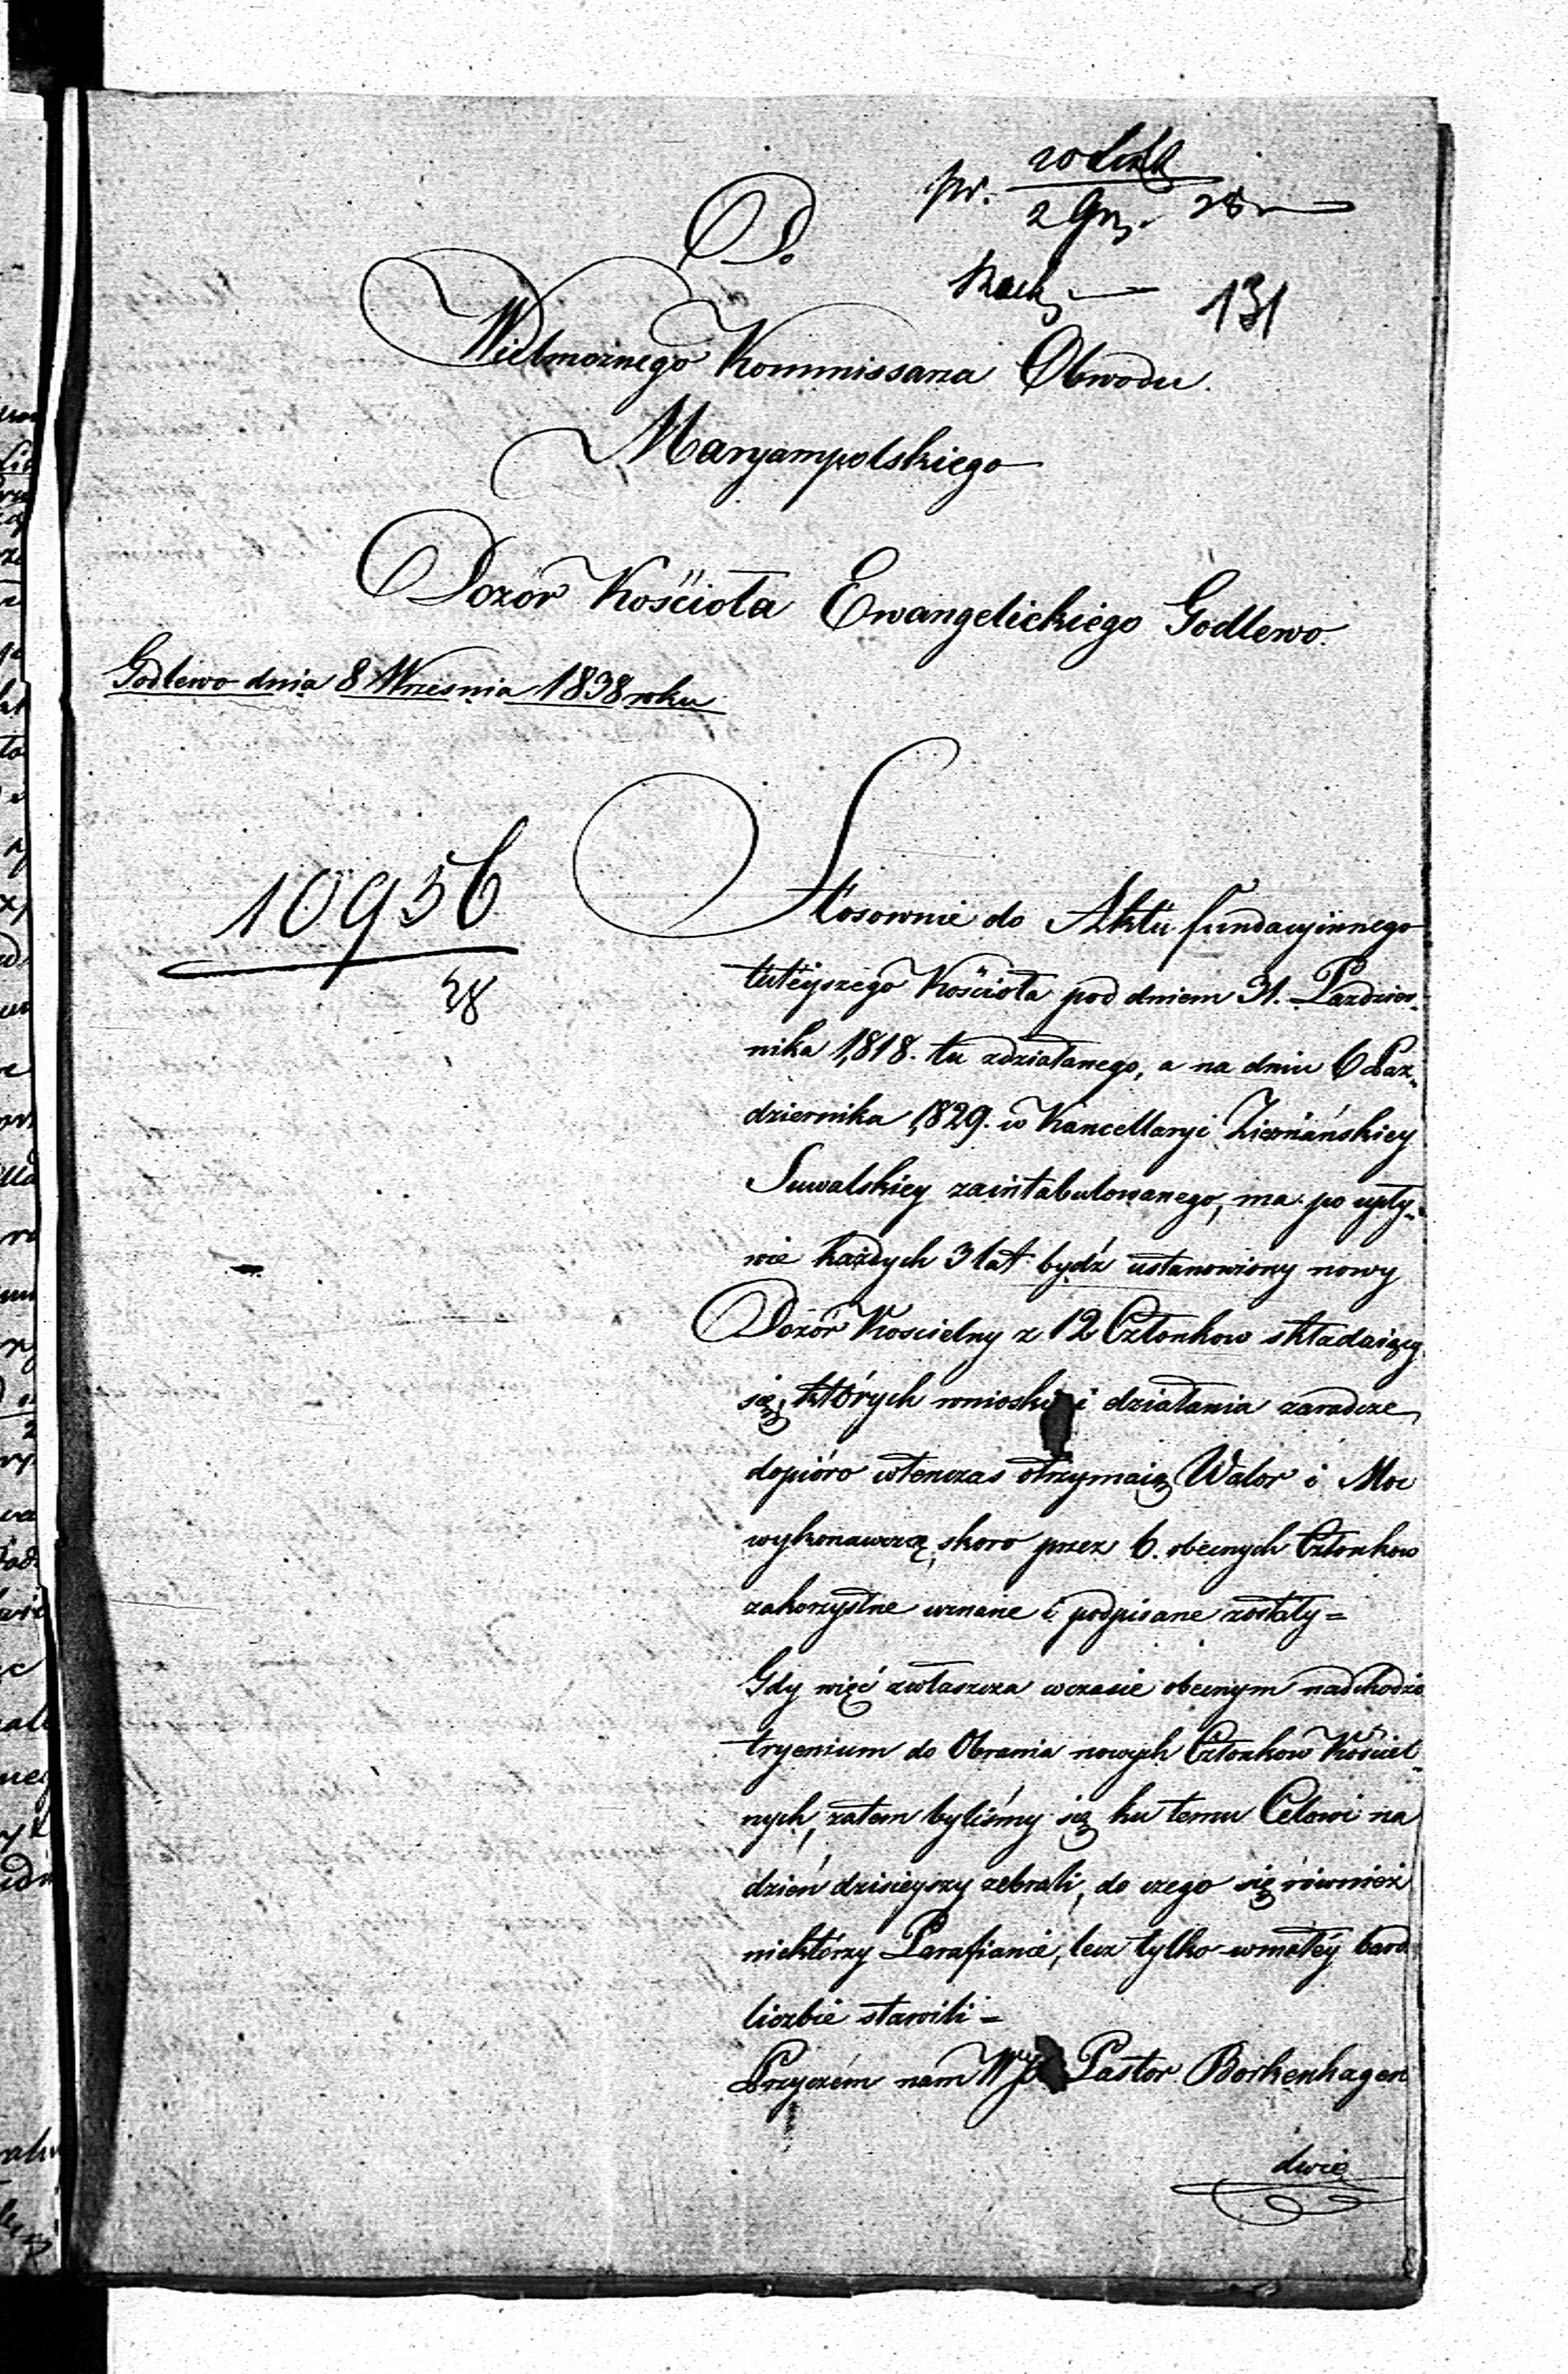 pr. 20
2 28
131
D.
Wielmożnego Kommissarza Obwodu
Maryampolskiego
Dozór Kościoła Ewangelickiego Godlewo.
Godlewo dnia 8 Września 1838 roku
10956
38
Stosownie do Aktu fundacyinnego
tuteyszego Kościoła pod dniem 31. Paździer-
nika 1818. tu zdziałanego, a na dniu 6 Paź-
dziernika 1829. w Kancellaryi Ziemiańskiey
Suwalskiey zaintabulowanego, ma po upły-
wie każdych 3 lat bydź ustanowiony nowy
Dozór Koscielny z 12 Członkow składaiący
się, których wnioski i działania zaradcze
dopióro wtenczas otrzymaią Walor i Moc
wykonawczą, skoro przez 6. obecnych Członkow
zakorzystne uznane i podpisane zostały =
Gdy więc zwłaszcza w czasie obecnym nadchodzi
tryenium do Obrania nowych Członkow Kościel-
nych, zatem byliśmy się ku temu Celowi na
dzień dzisieyszy zebrali, do czego się również
niektórzy Parafianie, lecz tylko w małéy bard
liczbie stawili =
Przyczém nam Pastor Borkenhagen
dwie